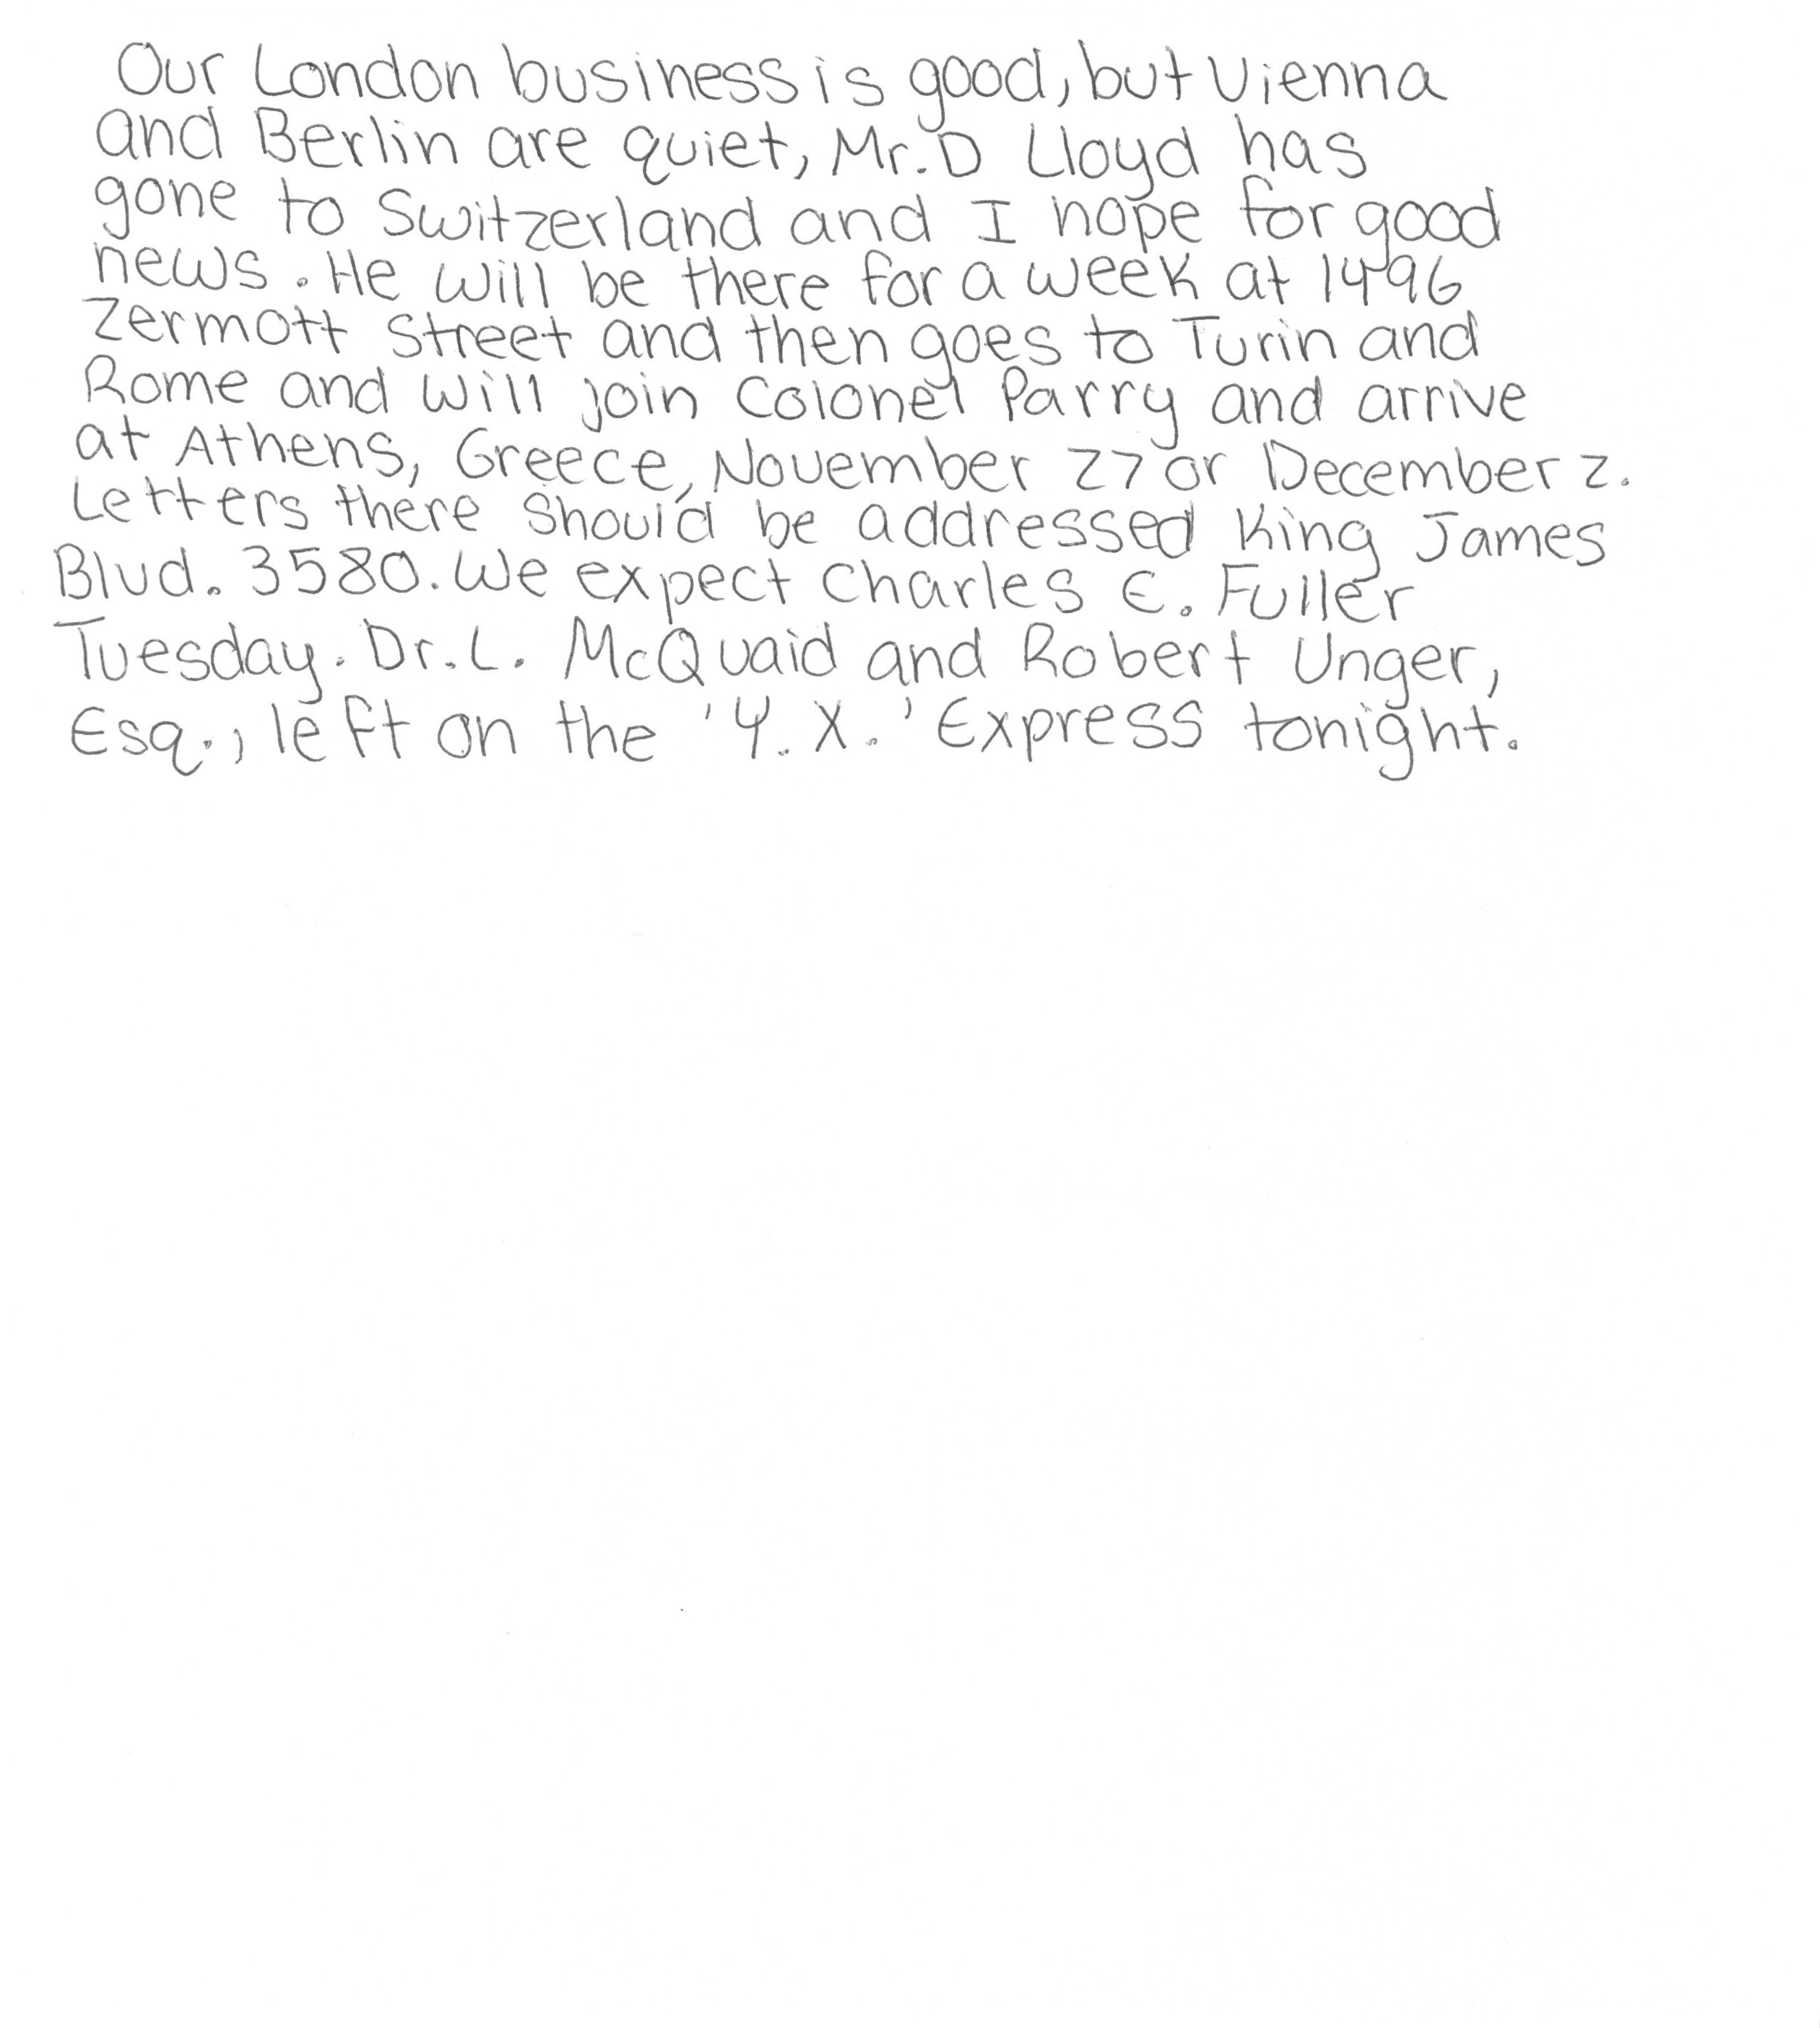 Our London business is good, but Vienna
and Berlin are quiet, Mr. D Lloyd has
gone to Switzerland and I hope for good
news. He will be there for a week at 1496
Zermott Street and then goes to Turin and
Rome and will join Colonel Parry and arrive
at Athens, Greece, November 27 or December 2.
Letters there should be addressed King James
Blvd. 3580. We expect Charles E. Fuller
Tuesday. Dr. L. McQuaid and Robert Unger,
Esq., left on the 'Y. X.' Express tonight.